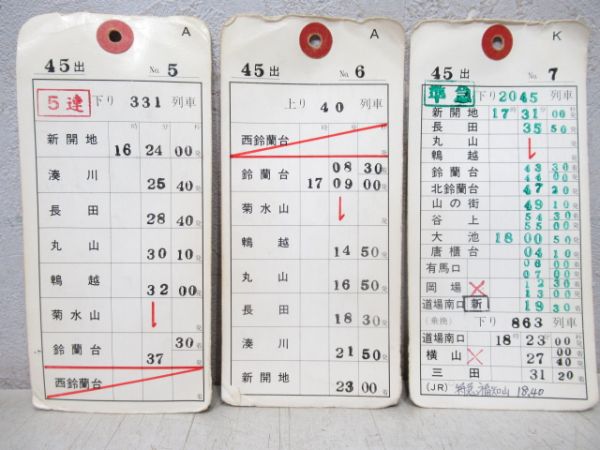 A
45出 No. 5
5連 下り 331 列車
時 分 秒
新開地 16 24 00発
湊川 25 40発
長田 28 40発
丸山 30 10発
鵯越 32 00発
菊水山 ↓ 発
鈴蘭台 37 30着
西鈴蘭台
A
45出 No. 6
上り 40 列車
西鈴蘭台
時 分 秒
鈴蘭台 08 30着
17 09 00発
菊水山 ↓
鵯越 14 50発
丸山 16 50発
長田 18 30発
湊川 21 50発
新開地 23 00着
K
45出 No. 7
準急 下り 2045 列車
新開地 17 31 00発
長田 35 50発
丸山 ↓
鵯越
鈴蘭台 43 30着
44 00発
北鈴蘭台 47 20発
山の街 49 10発
谷上 54 30着
55 00発
大池 18 00 50発
唐櫃台 04 10発
有馬口 06 00着
07 00発
岡場 × 12 30着
13 00発
道場南口 新 18 30着
(乗換) 下り 863 列車
道場南口 18 23 00発
横山 × 27 00着
40発
三田 31 20着
(JR) 特急 福知山 18.40